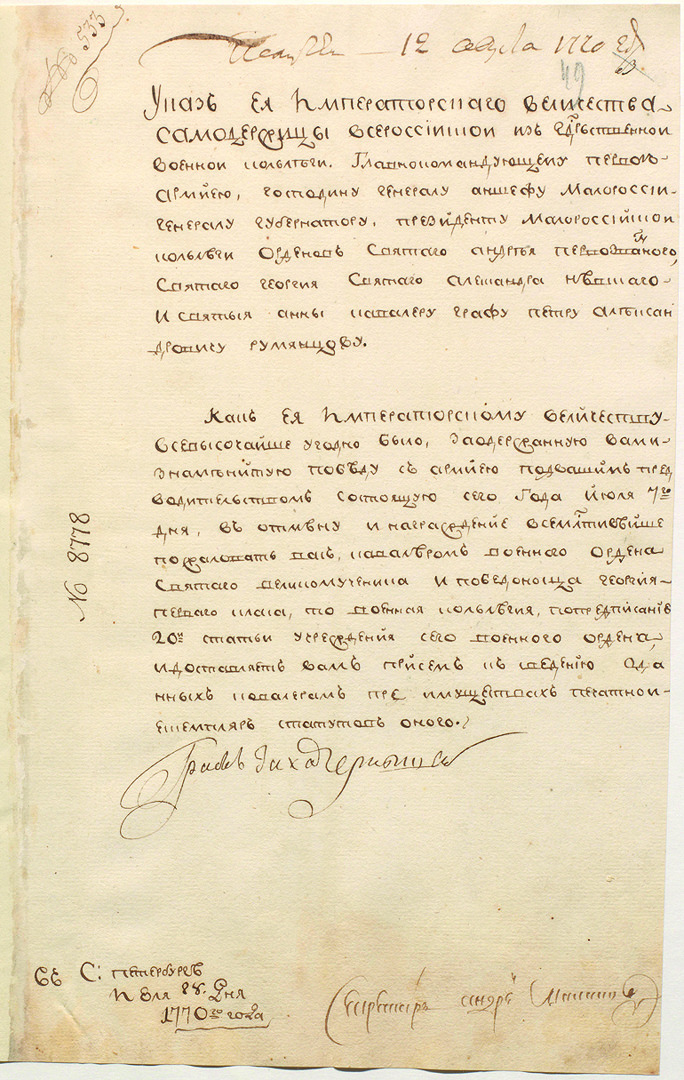 № 533
12 августа 1770
49
Указъ ея Императорскаго величества
самодержицы всероссiйской изъ гдрьственной
военной колълегiи. Главнокомандующему первою
армiею, господину генералу аншефу малороссiй
генералу губернатору, президенту малороссiйской
колълегiи орденовъ святаго андрея первозваннаго,
святаго георгiя святаго александра невскаго
и святыя анны кавалеру графу петру алексан
дровичу румянцову.
Какъ ея Императорскому величеству
всевысочайше угодно было, заодержанную вами
знаменитую победу съ армiею подвашимъ пред
водительствомъ состоящую сего года июля 7го
дня, въ отмену и награжденiе всемлтивейше
пожаловать васъ, кавалеромъ военного ордена
святаго великомученика и победоносца георгiя
перваго класа, то военная колълегiя, попредписанiю
20й статьи учрежденiя сего военного ордена,
идоставляетъ вамъ присемъ къ сведенiю о да
нныхъ кавалерамъ преимуществахъ печатной
екземпляръ статутовъ оного.
№ 8778
Графъ Захаръ Чернышев
С: петербургъ
июля 28. дня
1770го года
Секретарь андрей